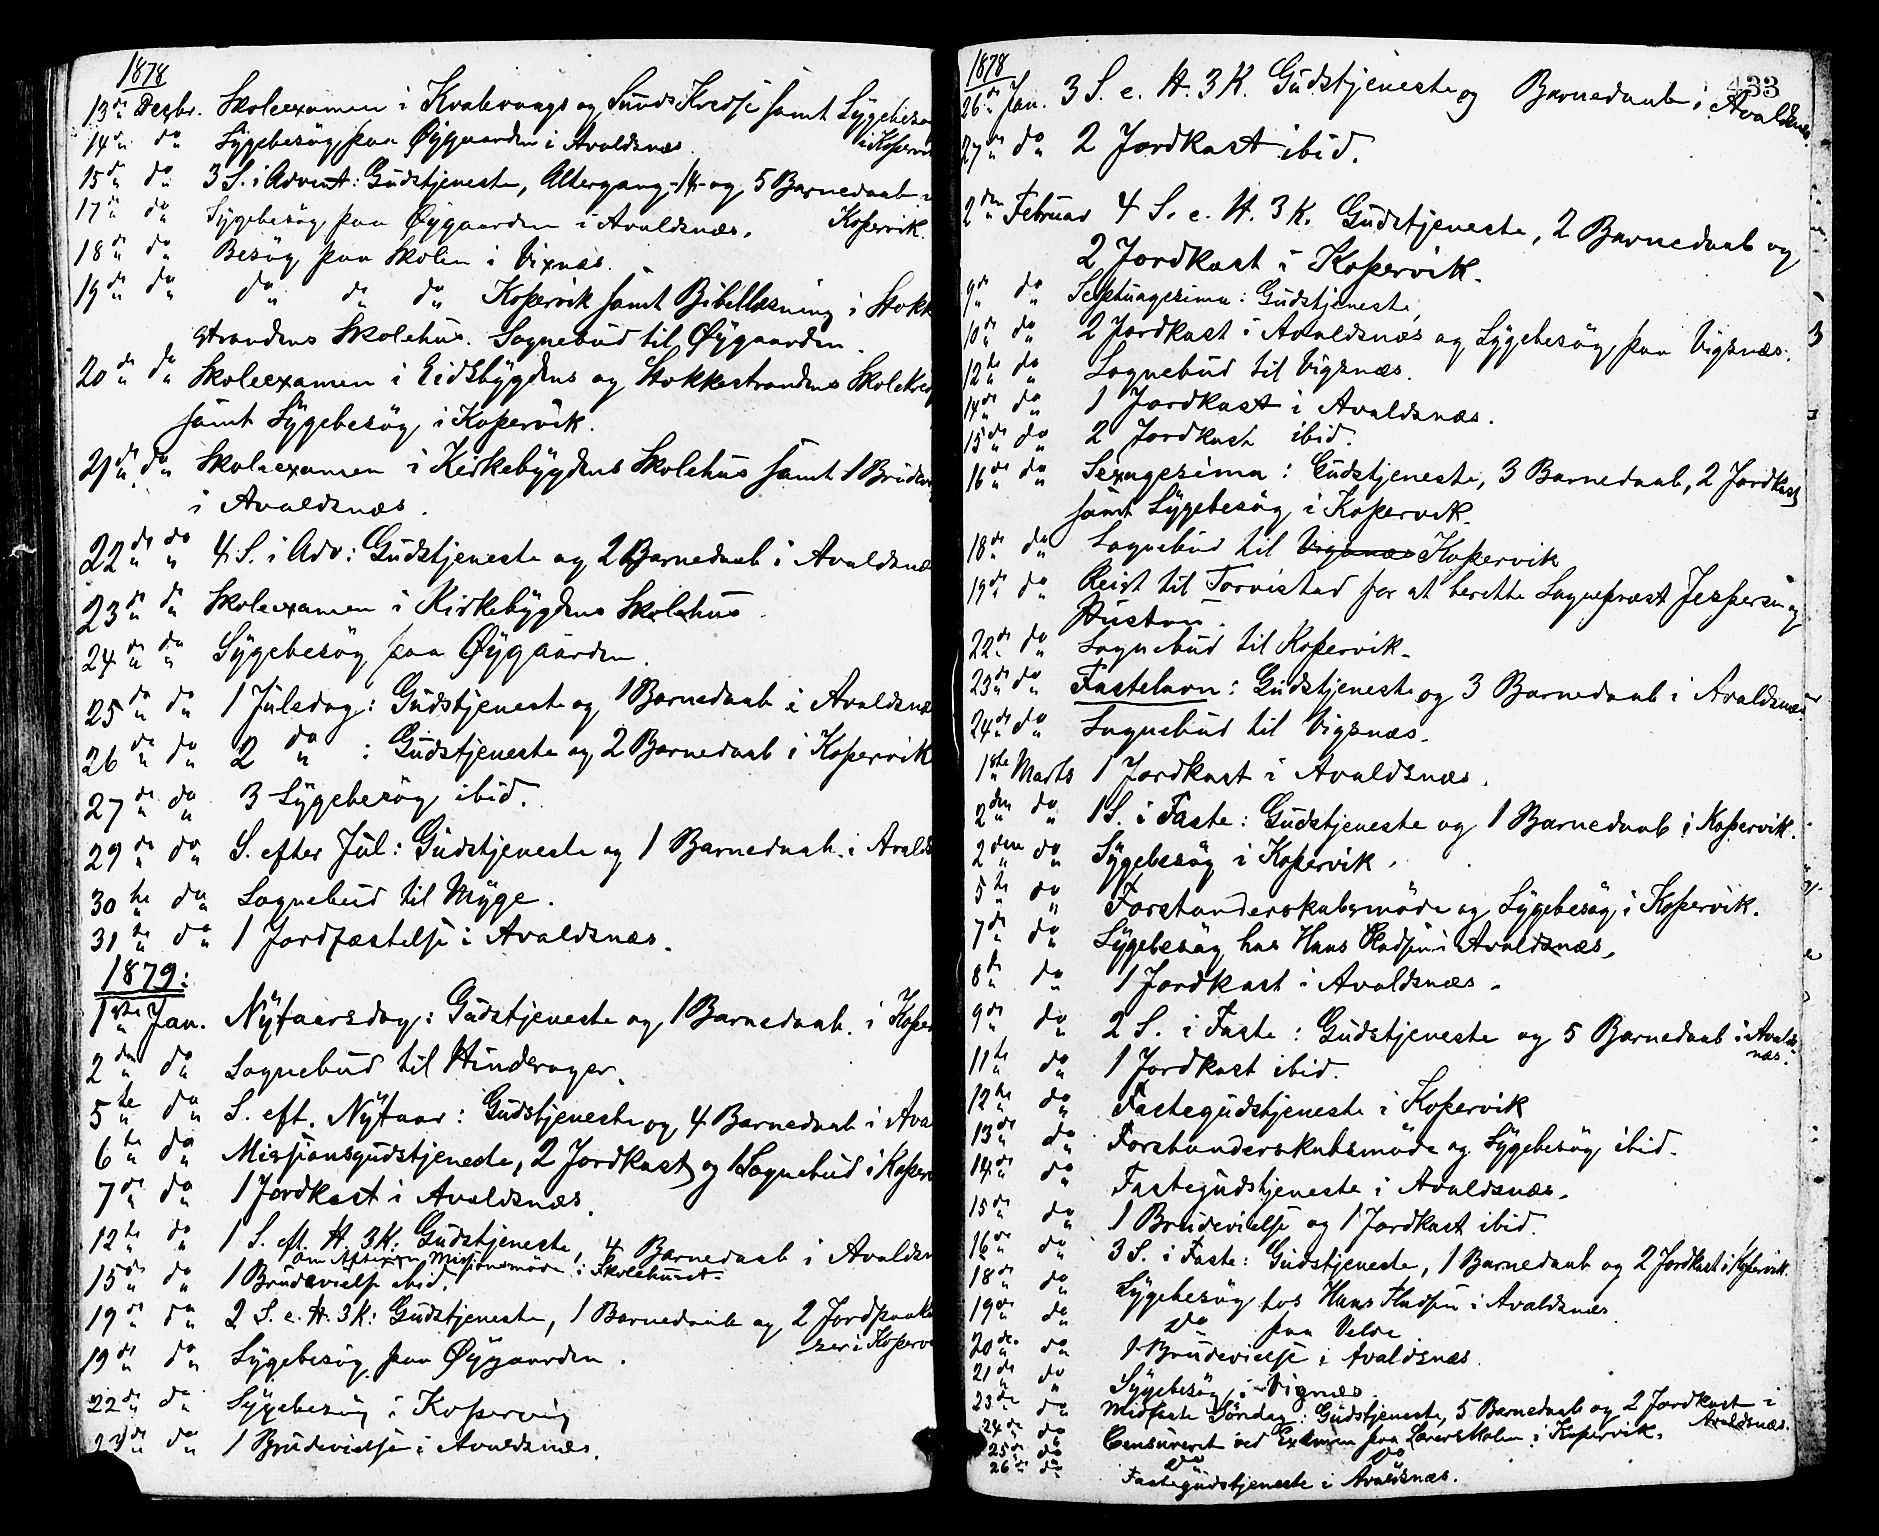 1878
13de Dezbr. Skoleexamen i Kvalevaags og Sunds Kredse samt Sygebesøg
i Kopervik
14de do Sygebesøg paa Øygaarden i Avaldsnæs.
15de do 3 S. i Advent: Gudstjeneste, Altergang -14- og 5 Barnedaab i
Kopervik.
17de do Sygebesøg paa Øygaarden i Avaldsnæs.
18de do Besøg paa Skolen i Vixnæs.
19de do do do do Kopervik samt Bibellæsning i Stokke
strandens Skolehus. Sognebud til Øygaarden.
20de do Skoleexamen i Eidsbygdens og Stokkestrandens Skolekreds
samt Sygebesøg i Kopervik.
21de do Skoleexamen i Kirkebygdens Skolehus samt 1 Brudevi
i Avaldsnæs.
22de do 4 S. i Adv: Gudstjeneste og 2 Barnedaab i Avaldsnæs
23de do Skoleexamen i Kirkebygdens Skolehus
24de do Sygebesøg paa Øygaarden.
25de do 1 Juledag: Gudstjeneste og 1 Barnedaab i Avaldsnæs
26de do 2 do : Gudstjeneste og 2 Barnedaab i Kopervik
27de do 3 Sygebesøg ibid.
29de do S. efter Jul: Gudstjeneste og 1 Barnedaab i Avalds
30te do Sognebud til Myge.
31te do 1 Jordfæstelse i Avaldsnæs.
1879:
1ste Jan. Nytaarsdag: Gudstjeneste og 1 Barnedaab i Koper
2den do Sognebud til Hinderager.
5te do S. eft. Nytaar: Gudstjeneste og 4 Barnedaab i Ava
6te do Missionsgudstjeneste, 2 Jordkast og 1 Sognebud i Koper
7de do 1 Jordkast i Avaldsnæs.
12te do 1 S. eft. H. 3 K: Gudstjeneste, 4 Barnedaab i Avaldsn
om Aftenen Missionsmøde i Skolehuset.
15de do 1 Brudevielse ibid.
19de do 2 S. e. H. 3 K: Gudstjeneste, 1 Barnedaab og 2 Jordpaaka
ser i Koperv
19de do Sygebesøg paa Øygaarden.
22de do Sygebesøg i Kopervig
23de do 1 Brudevielse i Avaldsnæs.
1878
433
26de Jan. 3 S. e. H. 3 K. Gudstjeneste og Barnedaab i Avaldsnæs.
27de do 2 Jordkast ibid.
2den Februar 4 S. e. H. 3 K. Gudstjeneste, 2 Barnedaab og
2 Jordkast i Kopervik.
9de do Septuagesima: Gudstjeneste
10de do 2 Jordkast i Avaldsnæs og Sygebesøg paa Vigsnæs.
12te do Sognebud til Vigsnæs.
14de do 1 Jordkast i Avaldsnæs.
15de do 2 Jordkast ibid.
16de do Sexagesima: Gudstjeneste, 3 Barnedaab, 2 Jordkast
samt Sygebesøg i Kopervik.
18de do Sognebud til Vigsnæs Kopervik
19de do Reist til Torvestad for at berette Sognepræst Jespersen og
Hustru.
22de do Sognebud til Kopervik.
23de do Fastelavn: Gudstjeneste og 3 Barnedaab i Avaldsnæs
24de do Sognebud til Vigsnæs.
1ste Marts 1 Jordkast i Avaldsnæs.
2den do 1 S. i Faste: Gudstjeneste og 1 Barnedaab i Kopervik.
2den do Sygebesøg i Kopervik.
5te do Forstanderskabsmøde og Sygebesøg i Kopervik.
7de do Sygebesøg hos Hans i Avaldsnæs.
8de do 1 Jordkast i Avaldsnæs.
9de do 2 S. i Faste: Gudstjeneste og 5 Barnedaab i Avalds-
næs.
11te do 1 Jordkast ibid.
12te do Fastegudstjeneste i Kopervik
13de do Forstanderskabsmøde og Sygebesøg ibid.
14de do Fastegudstjeneste i Avaldsnæs.
15de do 1 Brudevielse og 1 Jordkast ibid.
16de do 3 S. i Faste: Gudstjeneste, 1 Barnedaab og 2 Jordkast i Kopervik.
18de do Sygebesøg hos Hans i Avaldsnæs
19de do do paa Velde
20de do 1 Brudevielse i Avaldsnæs.
21de do Sygebesøg i Vignæs.
23de do Midfaste Søndag: Gudstjeneste, 5 Barnedaab og 2 Jordkast i
Avaldsnæs.
24de do Censureret ved Examen paa Lærerskolen i Kopervik.
25de do do do
26de do Fastegudstjeneste i Avaldsnæs.